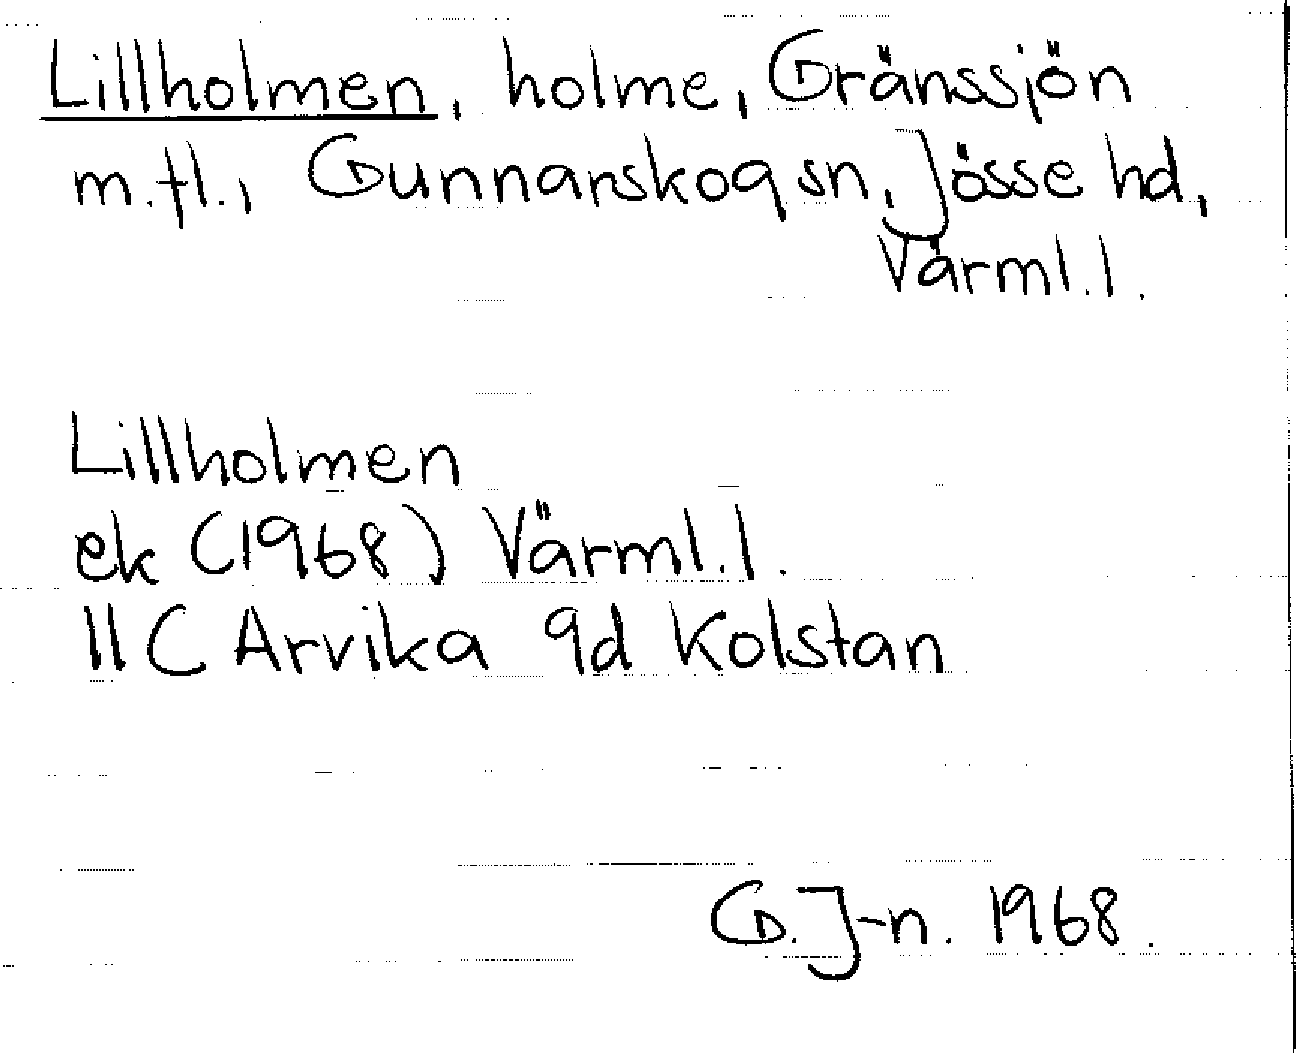 Lillholmen, holme, Gränssjön
m.fl., Gunnarskog sn, Jösse hd,
Värml.l.
Lillholmen
ek (1968) Värml.l.
11C Arvika 9d Kolstan
G.J-n. 1968.